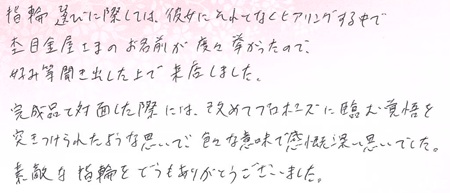 指輪選びに際しては、彼女にそれとなくヒアリングする中で
杢目金屋さまのお名前が度々挙がったので、
好み等聞き出した上で来店しました。
完成品と対面した際には、改めてプロポーズに臨む覚悟を
突きつけられたような思いで、色々な意味で感慨深い思いでした。
素敵な指輪をどうもありがとうございました。